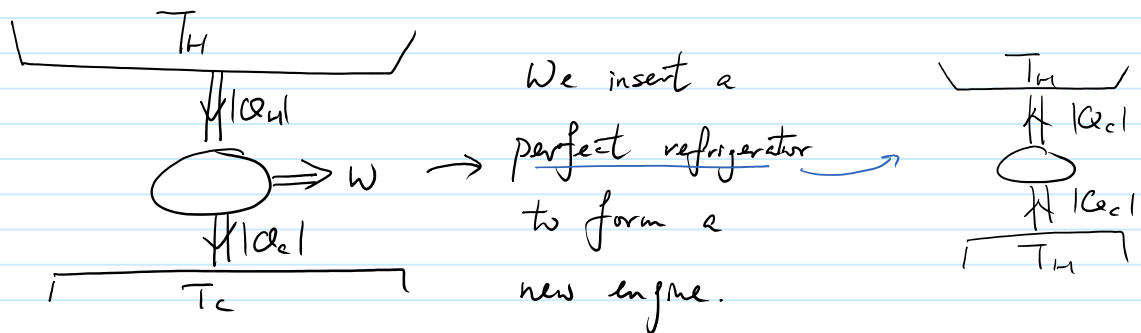 T_H
|Q_H|
→ W
|Q_c|
T_c
→
We insert a
perfect refrigerator
to form a
new engine.
T_H
|Q_c|
|Q_c|
T_H